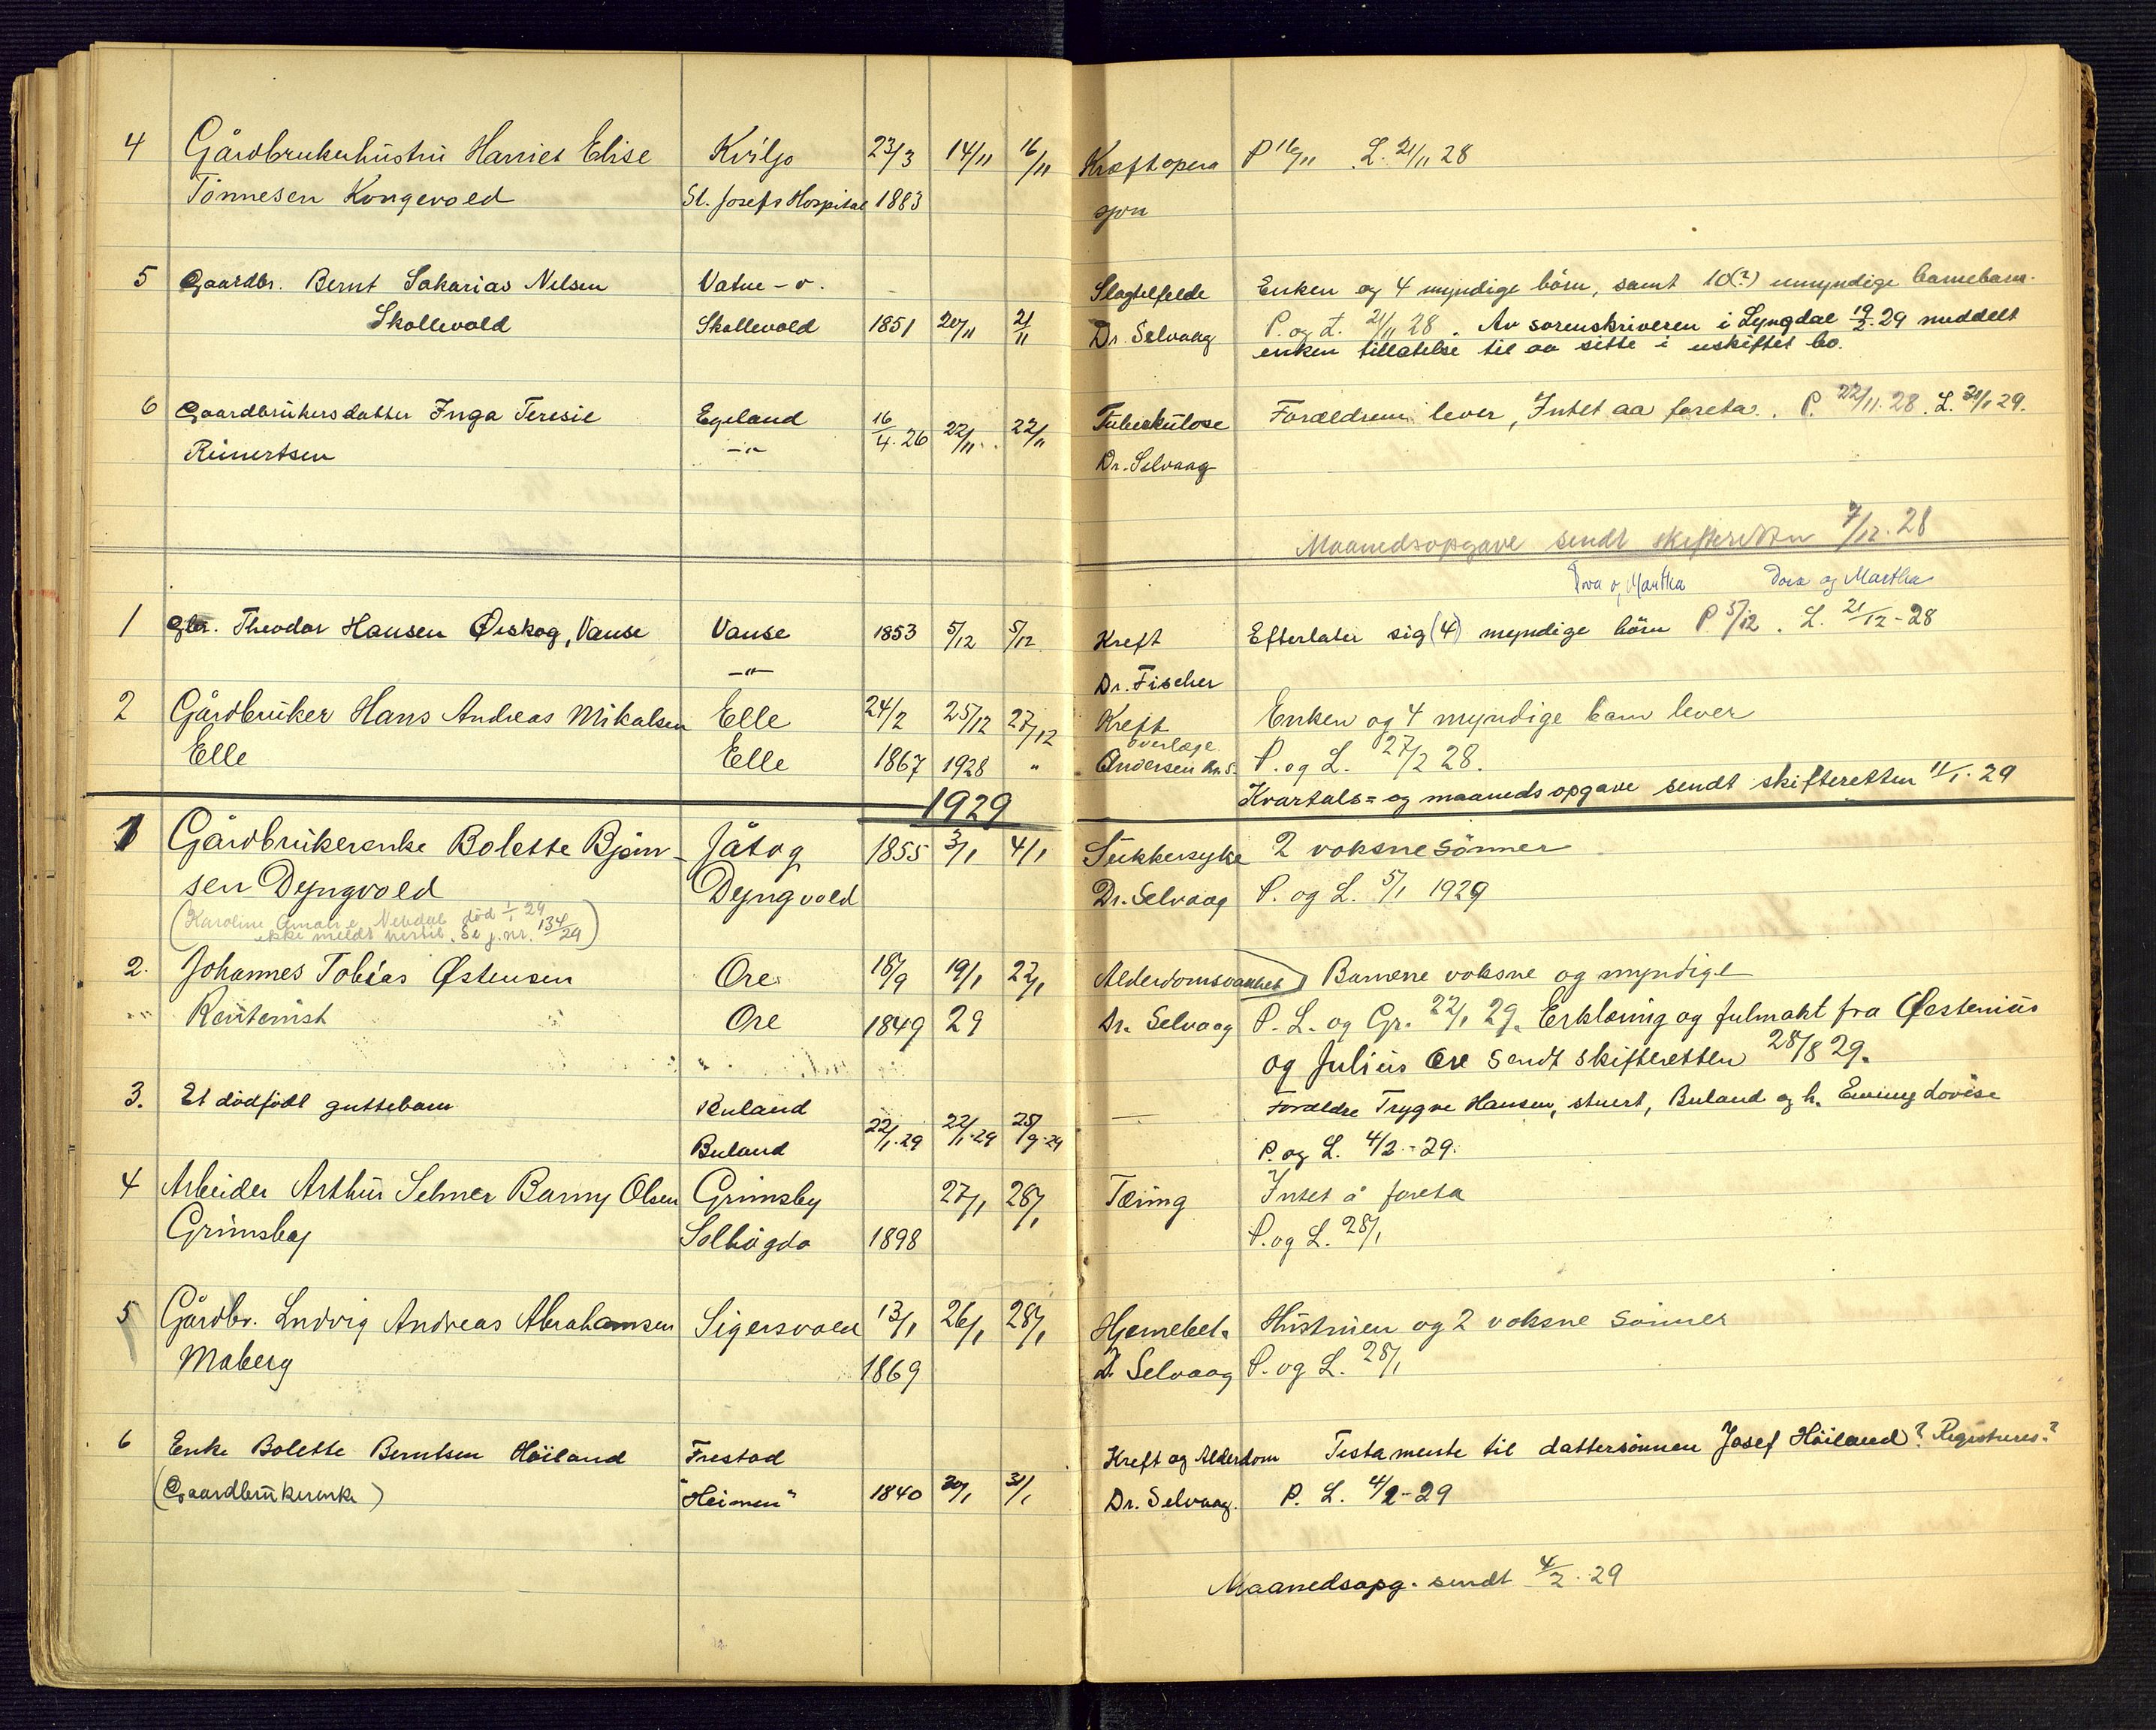 4 Gårdbrukerhustru Harriet Elise Kviljo 23/3 14/11 16/11 Kræftopera P 16/11 L. 21/11 28
Tönnesen Kongevold St. Josefs Hospital 1883 sjon
5 Gaardbr. Bernt Sakarias Nilsen Vatne-ö. Slagtilfelde Enken og 4 myndige börn, samt 10(?) umyndige barnebarn.
Skollevold Skollevold 1851 20/11 21/11 Dr. Selvaag P. og L. 21/11 28. Av sorenskriveren i Lyngdal 19/2.29 meddelt
enken tillatelse til aa sitte i uskiftet bo.
6 Gaardbrukersdatter Inga Teresie Egeland 16/4.26 22/11. 22/11 Tuberkulose Forældrene lever, Intet aa foreta. P. 22/11.28. L. 21/1 29.
Reinertsen -"- Dr. Selvaag
Maanedsopgave sendt skifteretten 7/12.28
Tora og Martha Dora og Martha
1 Gbr. Theodor Hansen Øiskog, Vanse Vanse 1853 5/12 5/12 Kreft Efterlater sig (4) myndige börn P. 5/12. L. 21/12-28
-"- Dr. Fischer
2 Gårdbruker Hans Andreas Mikalsen Elle 24/2 25/12 27/12 Kreft Enken og 4 myndige barn lever
Elle Elle 1867 1928 " overlæge Andersen Kr.S. P. og L. 27/2 28.
Kvartals= og maanedsopgave sendt skifteretten 11/1.29
1929
1 Gårdbrukerenke Bolette Bjørn- Jåtog 1855 3/1 4/1 Sukkersyke 2 voksne sönner
sen Dyngvold Dyngvold Dr. Selvaag P. og L. 5/1 1929
(Karoline Amalie Nebdal död 1/1 29
ikke meldt hertil. Se j.nr. 134/29)
2. Johannes Tobias Østensen Ore 18/9 19/1 22/1 Alderdomsvakhet Barnene voksne og myndige
Rentenist Ore 1849 29 Dr. Selvaag P. L. og Gr. 22/1 29. Erklæring og fulmakt fra Østenius
og Julius Ore sendt skifteretten 28/8 29.
3. Et dödfödt guttebarn Buland 22/1.29 22/1.29 25/9.29 — Forældre Trygve Hansen, stuert, Buland og h. Emmy Lovise
Buland P. og L. 4/2.-29.
4 Arbeider Arthur Selmer Barny Olsen Grimsby 27/1 28/1 Tæring Intet å foreta
Grimsby Solhögda 1898 P. og L. 28/1
5 Gårdbr. Ludvig Andreas Abrahamsen Sigersvold 13/1 26/1 28/1 Hjernebet. Hustruen og 2 voksne sönner
Maberg 1869 D. Selvaag P. og L. 28/1
6 Enke Bolette Berntsen Höiland Frestad Kreft og Alderdom Testamente til dattersönnen Josef Höiland? Registreres?
(Gaardbrukerenke) "Heimen" 1840 30/1 31/1 Dr. Selvaag. P. L. 4/2-29
Maanedsopg. sendt 4/2.29